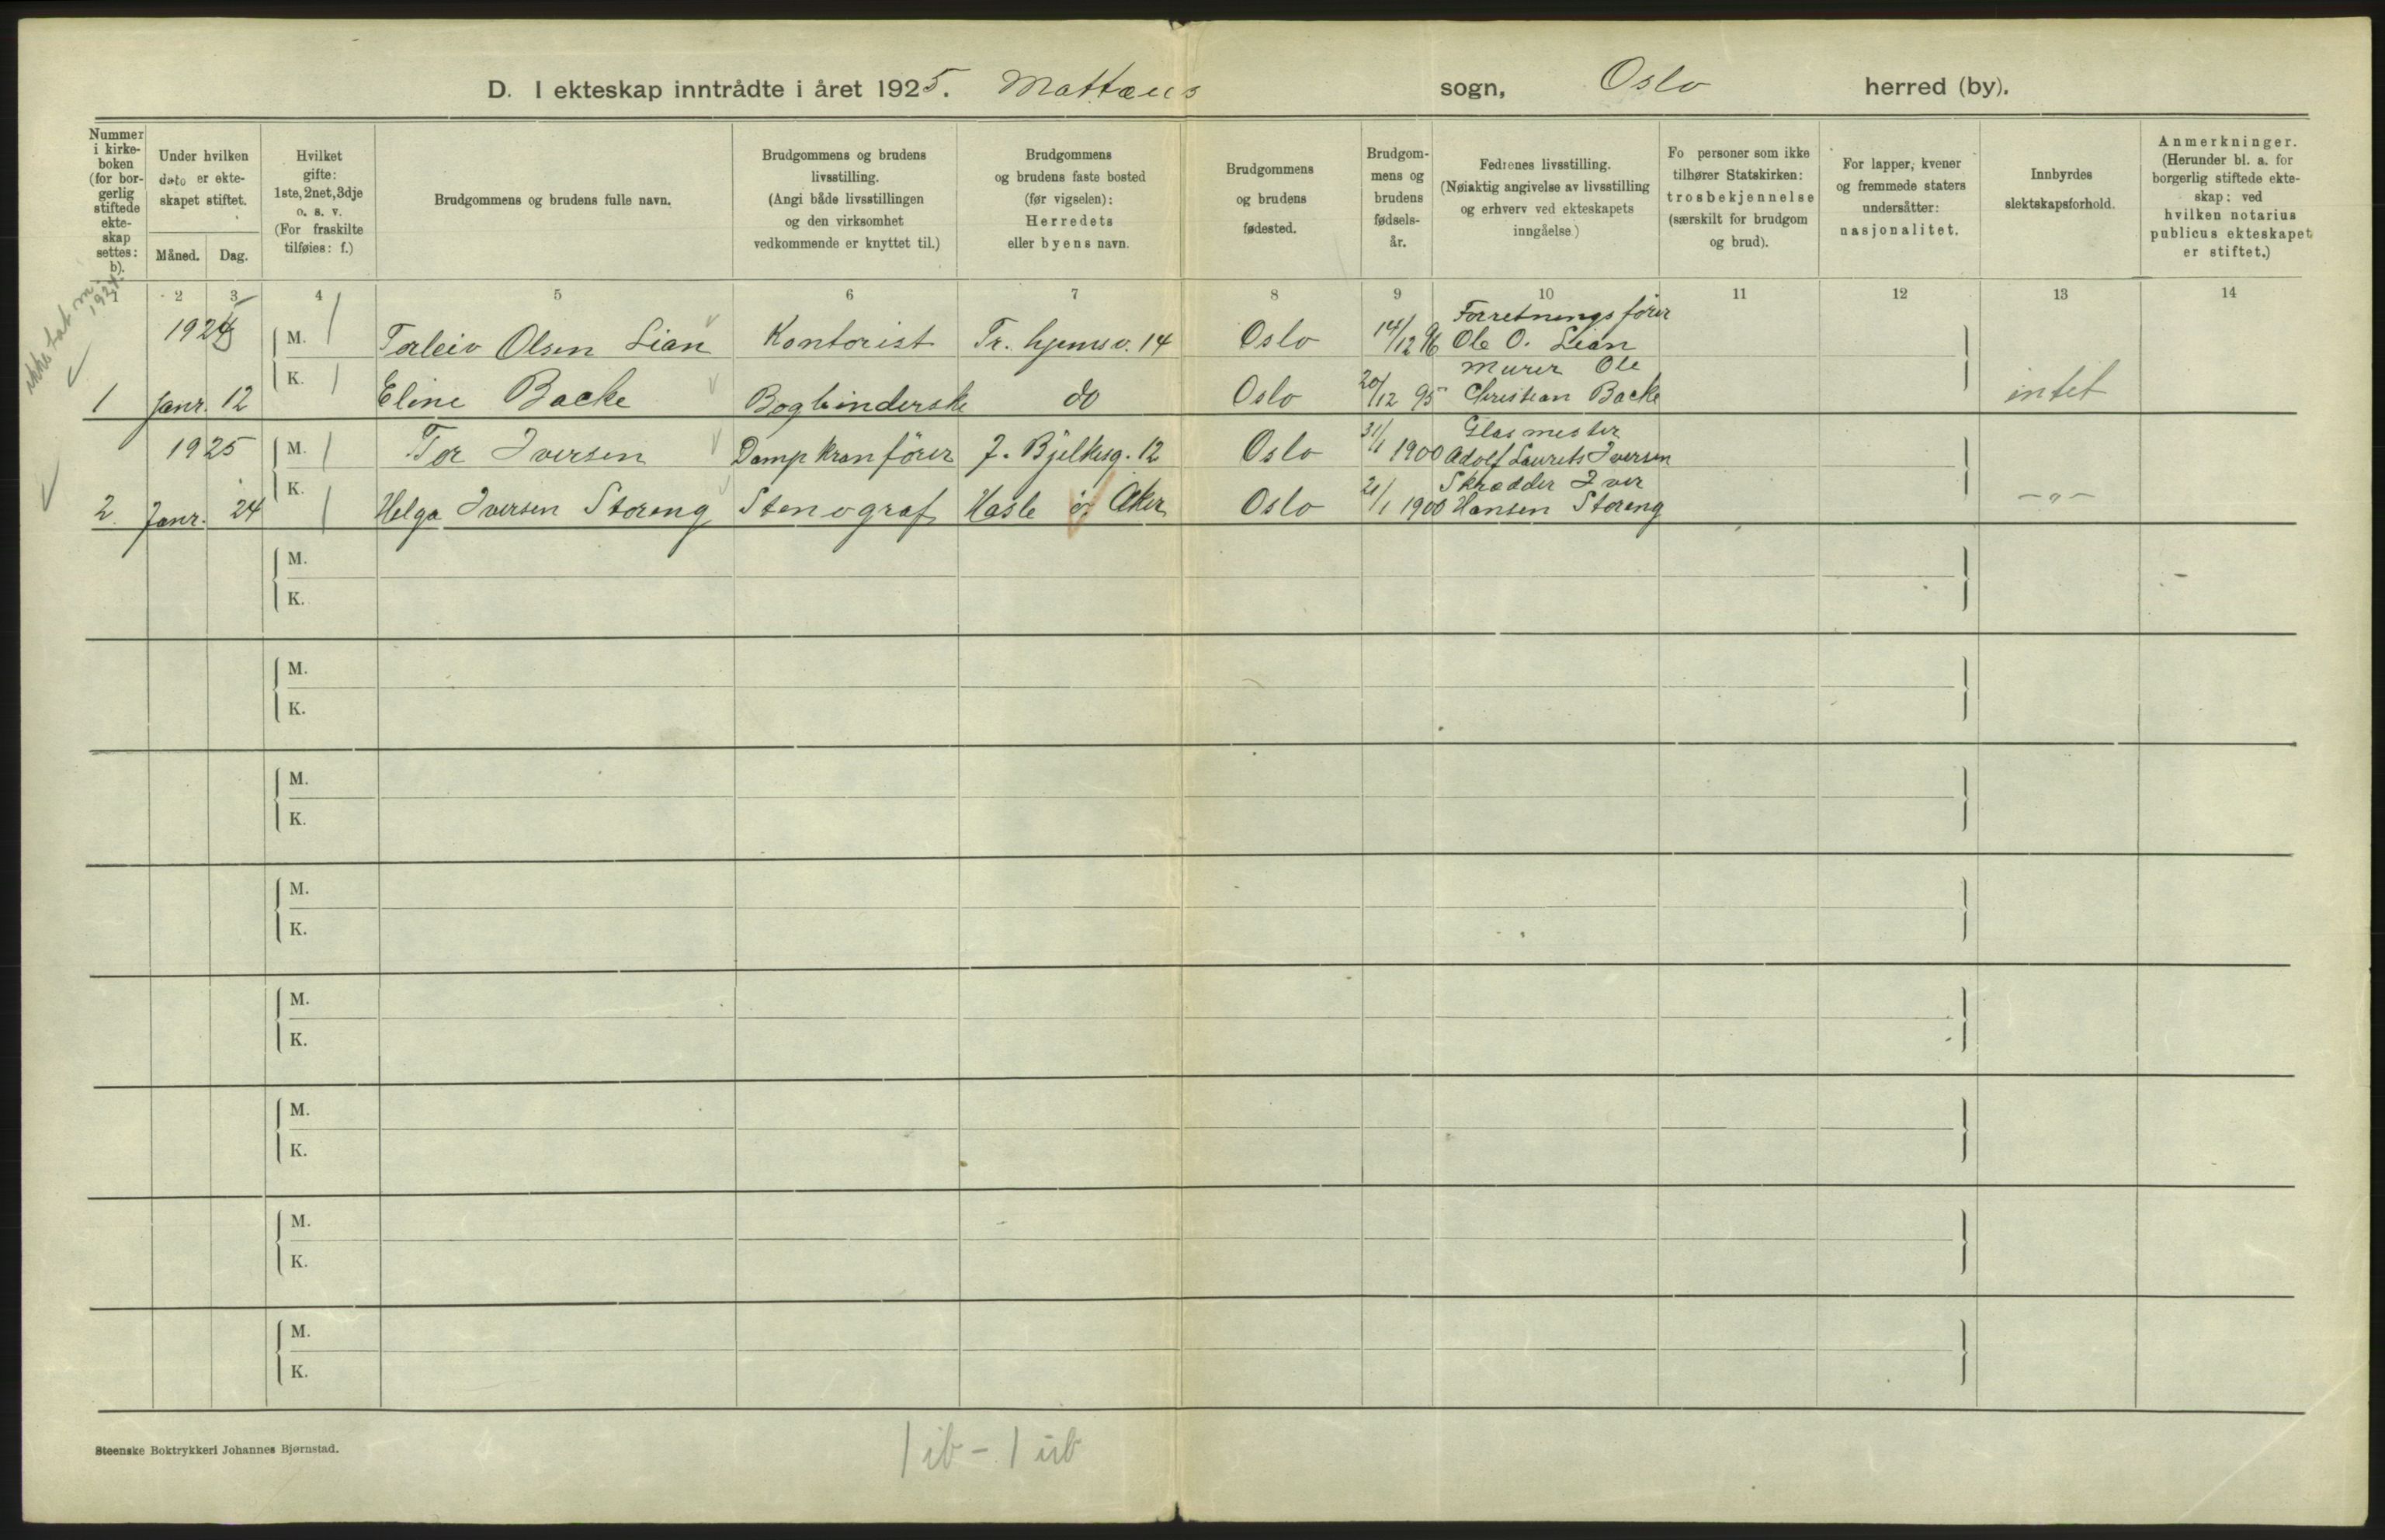 D. I ekteskap inntrådte i året 1925. Mattæus sogn, Oslo herred (by).
Nummer i kirke-boken (for bor-gerlig stiftede ekte-skap settes: b).
Under hvilken dato er ekte-skapet stiftet.
Måned. Dag.
Hvilket gifte: 1ste, 2net, 3dje o. s. v. (For fraskilte tilføies: f.)
Brudgommens og brudens fulle navn.
Brudgommens og brudens livsstilling. (Angi både livsstillingen og den virksomhet vedkommende er knyttet til.)
Brudgommens og brudens faste bosted (før vigselen): Herredets eller byens navn.
Brudgommens og brudens fødested.
Brudgom-mens og brudens fødsels-år.
Fedrenes livsstilling. (Nøiaktig angivelse av livsstilling og erhverv ved ekteskapets inngåelse)
Fo personer som ikke tilhører Statskirken: trosbekjennelse (særskilt for brudgom og brud).
For lapper, kvener og fremmede staters undersåtter: nasjonalitet.
Innbyrdes slektskapsforhold.
Anmerkninger. (Herunder bl. a. for borgerlig stiftede ekte-skap: ved hvilken notarius publicus ekteskapet er stiftet.)
1 2 3 4 5 6 7 8 9 10 11 12 13 14
ikke tat m. 1924.
Forretningsfører
192 5 M. 1 Torleiv Olsen Lian Kontorist Tr. hjemsv. 14 Oslo 14/12 96 Ole O. Lian
Murer Ole
1 Janr. 12 K. 1 Eline Backe Bogbinderske do Oslo 20/12 95 Christian Backe intet
Glasmester
1925 M. 1 Tor Iversen Dampkranfører J. Bjelkesg. 12 Oslo 31/1 1900 Adolf Laurits Iversen
Skrædder Iver
2. Janr. 24 K. 1 Helga Iversen Storeng Stenograf Hasle i Aker Oslo 21/1 1900 Hansen Storeng - " -
M.
K.
M.
K.
M.
K.
M.
K.
M.
K.
M.
K.
M.
K.
M.
K.
Steenske Boktrykkeri Johannes Bjørnstad.
1 ib - 1 ub